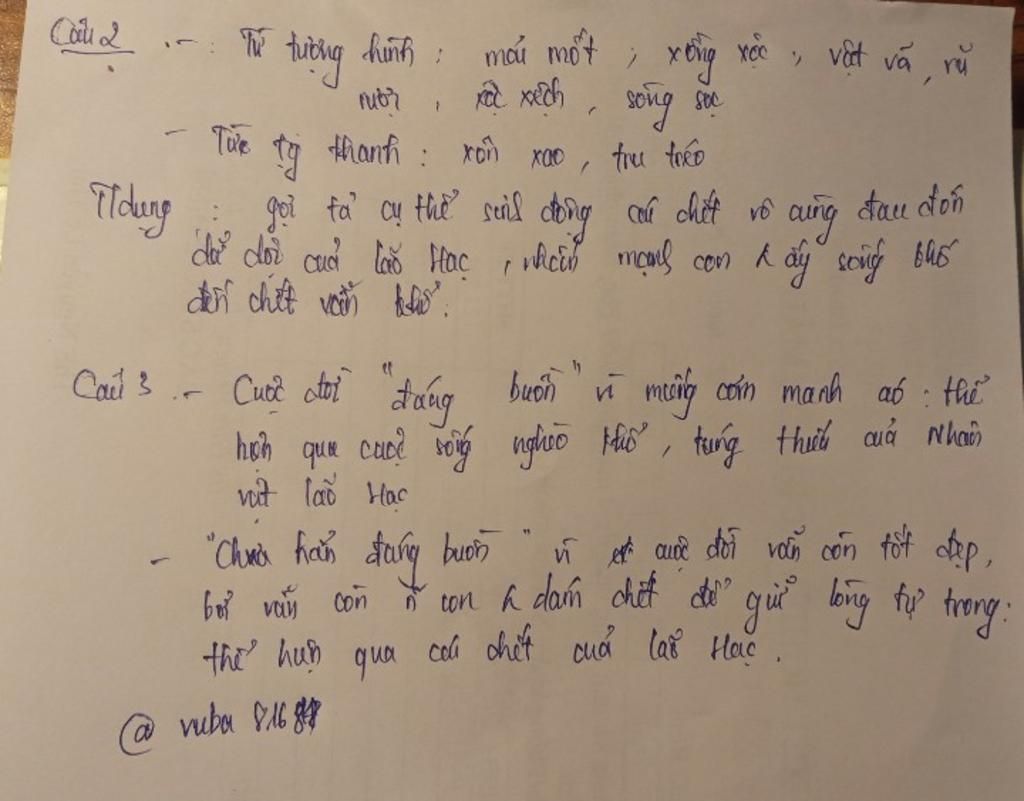 Câu 2 .- : Từ tượng hình : móm mốt ; xồng xộc , vật vã, rũ
rượi , xộc xệch , sòng sọc
- Từ tg thanh : xôn xao , tru tréo
T/dụng : gợi tả cụ thể sinh động cái chết vô cùng đau đớn
dữ dội của lão Hạc , nhấn mạnh con ng ấy sống khổ
đến chết vẫn khổ.
Câu 3 .- Cuộc đời "đáng buồn" vì miếng cơm manh áo : thể
hiện qua cuộc sống nghèo khổ , túng thiếu của nhân
vật lão Hạc
- "Chưa hẳn đáng buồn" vì cuộc đời vẫn còn tốt đẹp,
bởi vẫn còn n~ con ng dám chết để giữ lòng tự trọng :
thể hiện qua cái chết của lão Hạc .
@ vuba 816